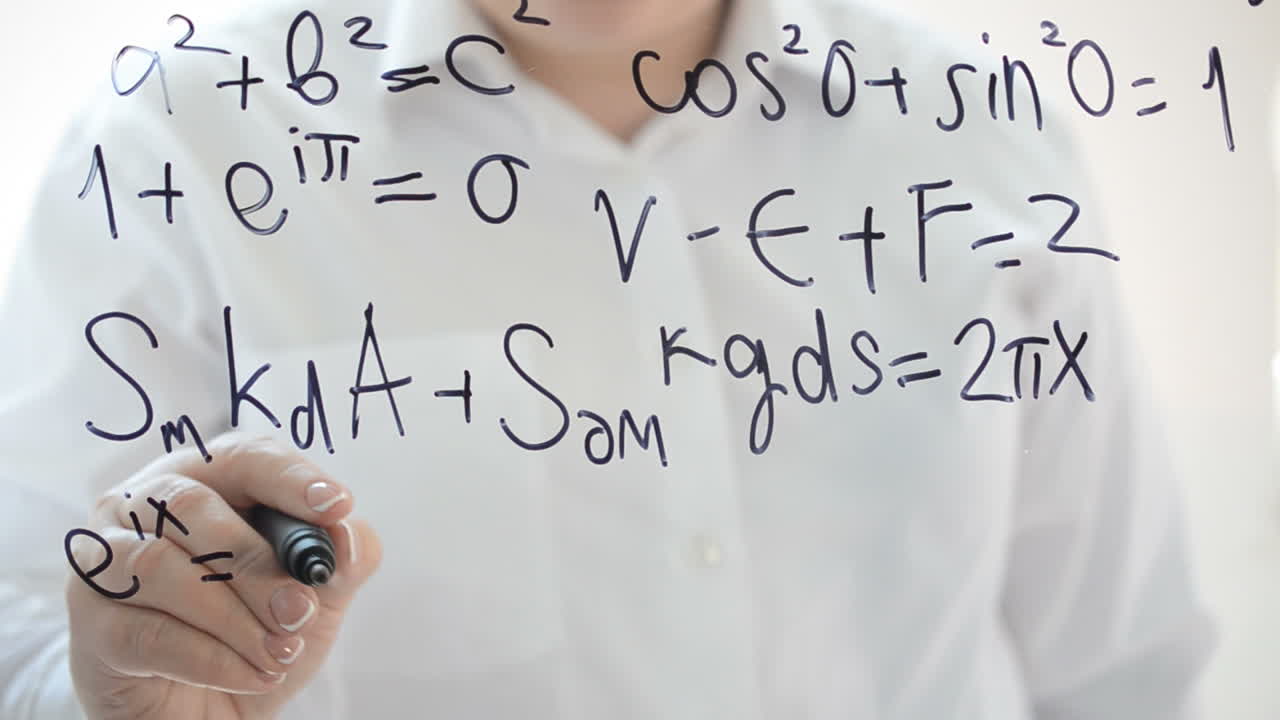 a² + b² = c²
cos²0 + sin²0 = 1
1 + e^iπ = 0
V - E + F = 2
S_m k_dA + S_∂M kgds = 2πx
e^ix =